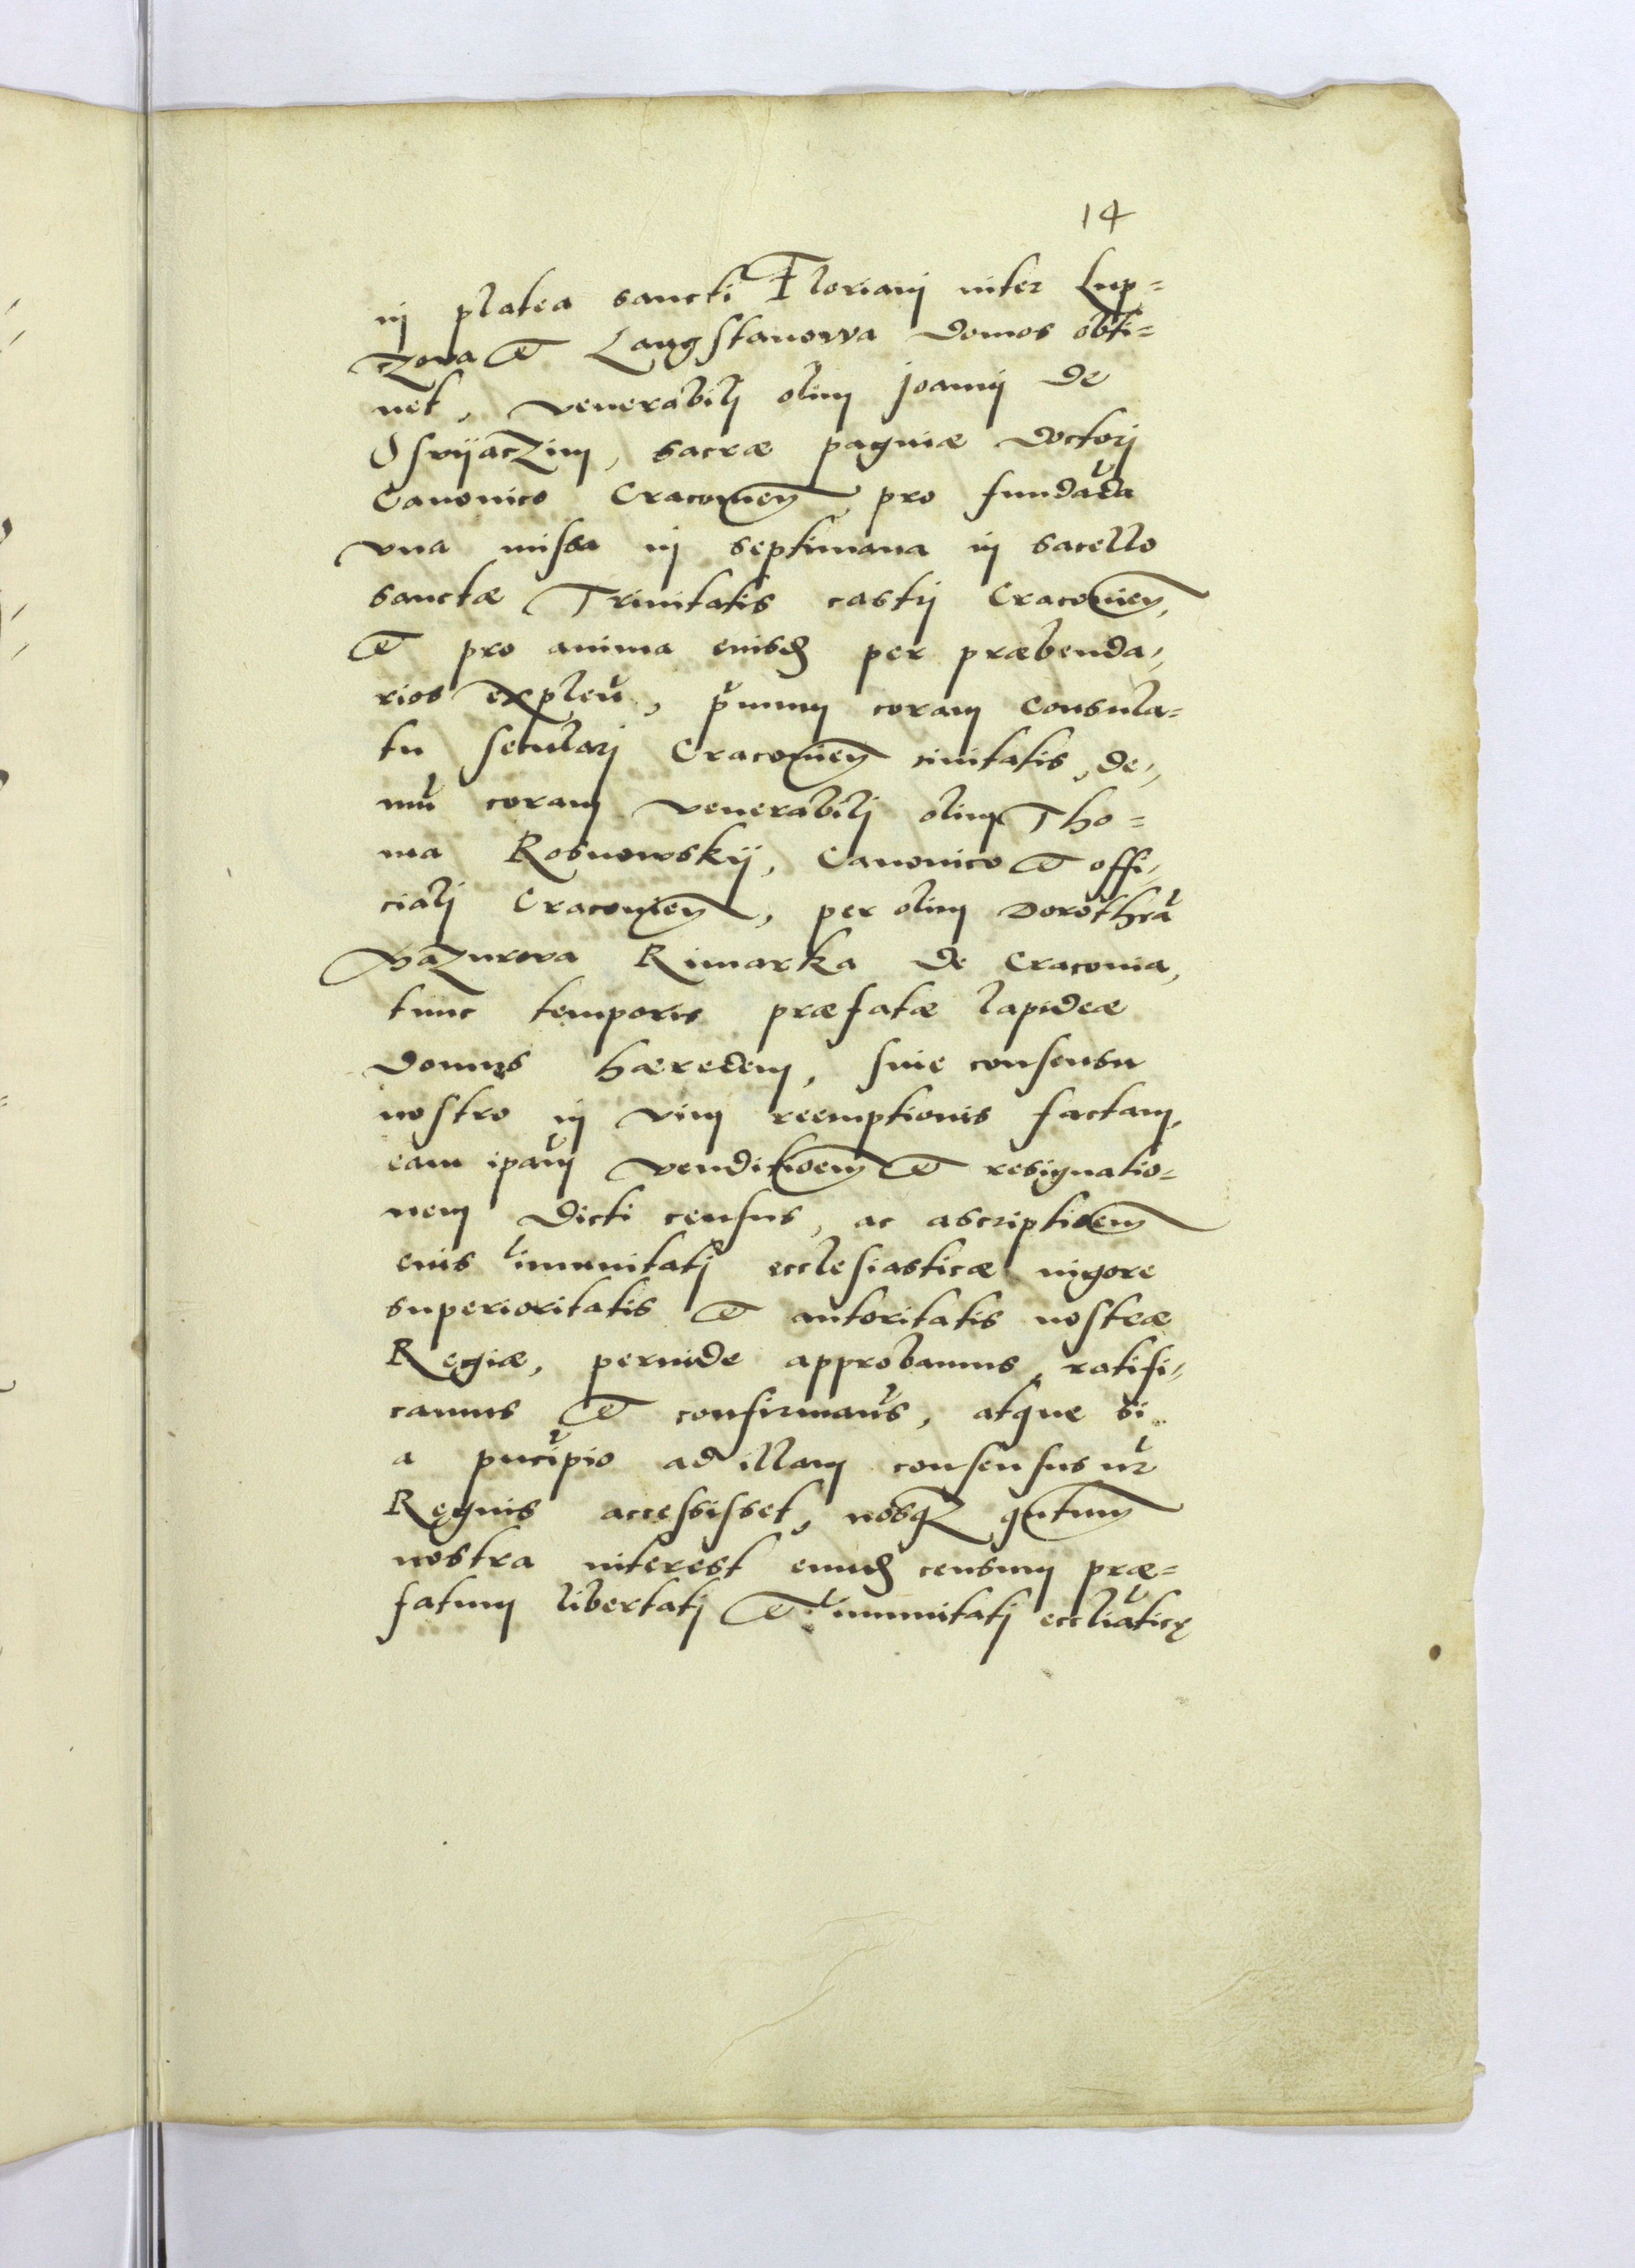 14
in platea sancti Floriani inter Lup=
czowa et Langstanowa domos obti=
net, venerabili olim Joanni de
Oswijaczim, sacræ paginæ doctori
Canonico Cracovien pro fundāda
vna missa in septimana in sacello
sanctæ Trinitatis castri Cracovien,
et pro anima eiusd per præbenda=
rios explēn, pimum coram Consula=
tu seculari Cracovien civitatis, de=
mū coram venerabili olim Tho=
ma Rosnowskij, Canonico et offi=
ciali Cracovien, per olim Dorotheā
Vazurowa Rimarka de Cracovia,
tunc temporis præfatæ lapideæ
domus hæredem, sine consensu
nostro in vim reemptionis factam,
eam ipam venditioem et resignatio=
nem dicti census, ac ascriptioem
eius imunitati ecclesiasticæ vigore
superioritatis et autoritatis nostræ
Regiæ, perinde approbamus, ratifi=
camus et confirmam̄s, atque si
a pncipio ad illam consensus nr
Regius accessisset, nosq3 qntum
nostra interest eumd censum præ=
fatum libertati et imunitati eccliāticę